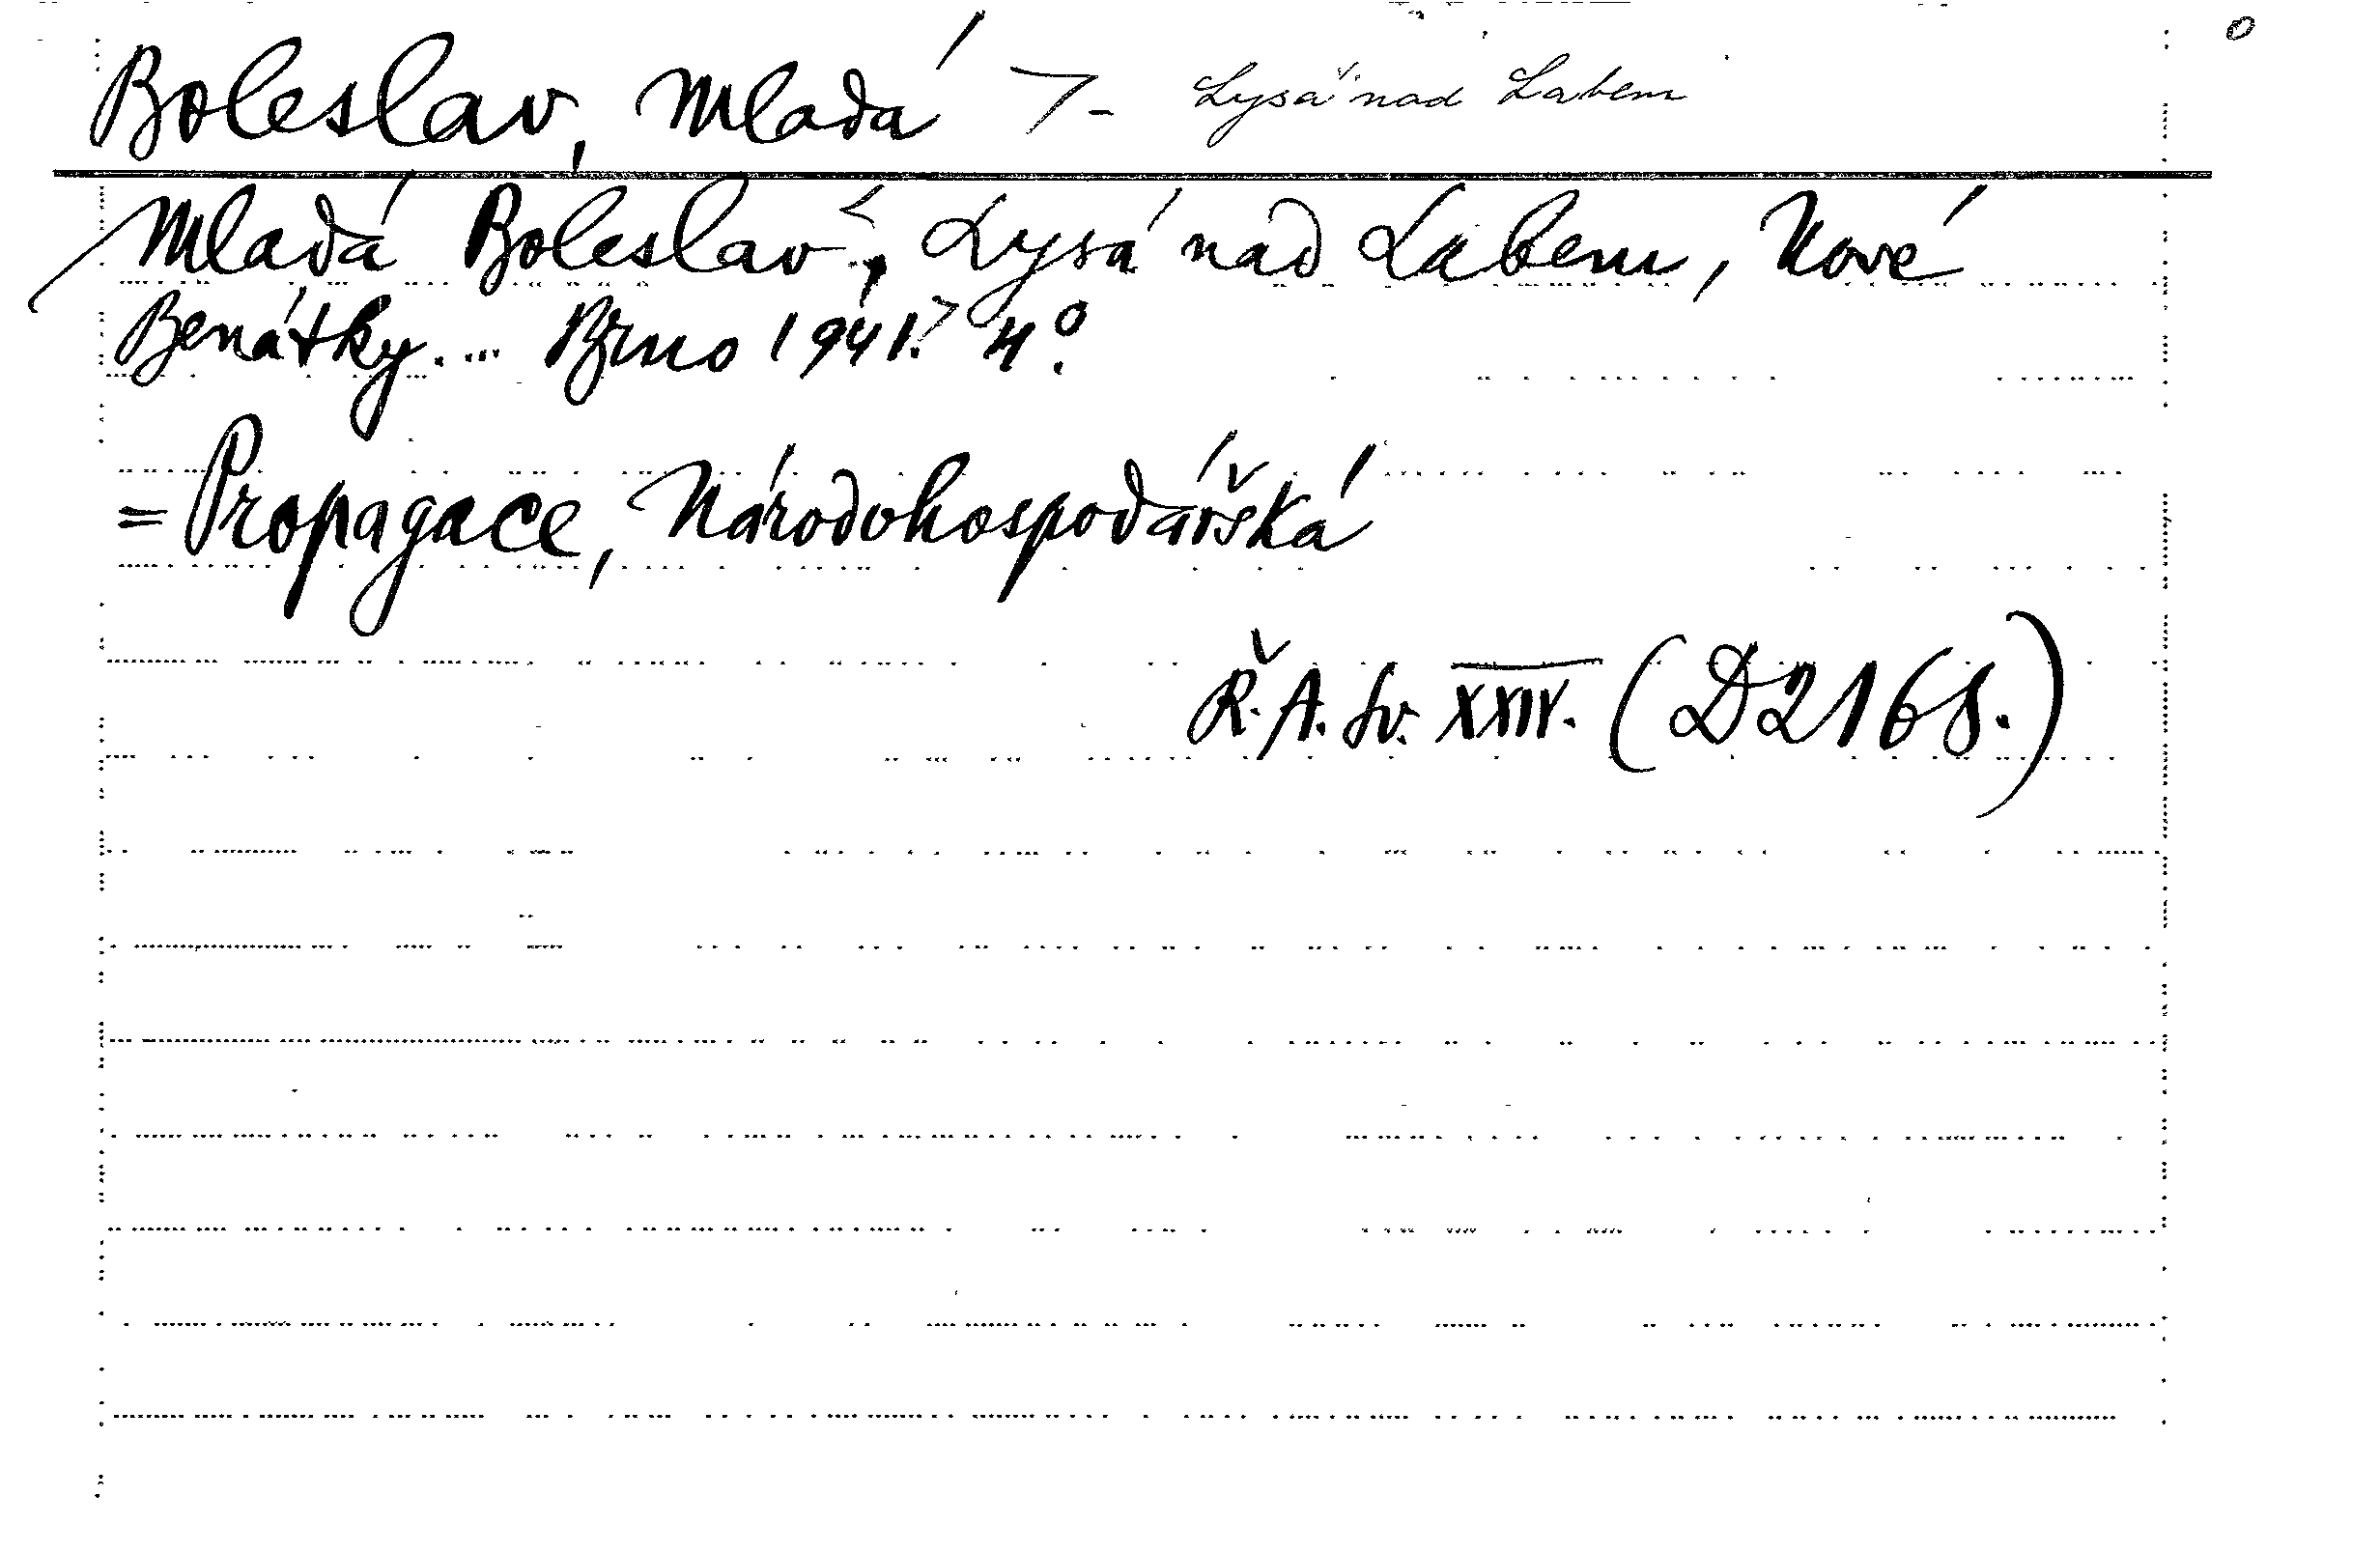 Boleslav, Mladá 7- Lysá nad Labem
Mladá Boleslav, Lysá nad Labem, Nové
Benátky.... Brno 1941. 4°.
= Propagace, Národohospodářská
Ř. A. Sv. XXIV. (D2168.)